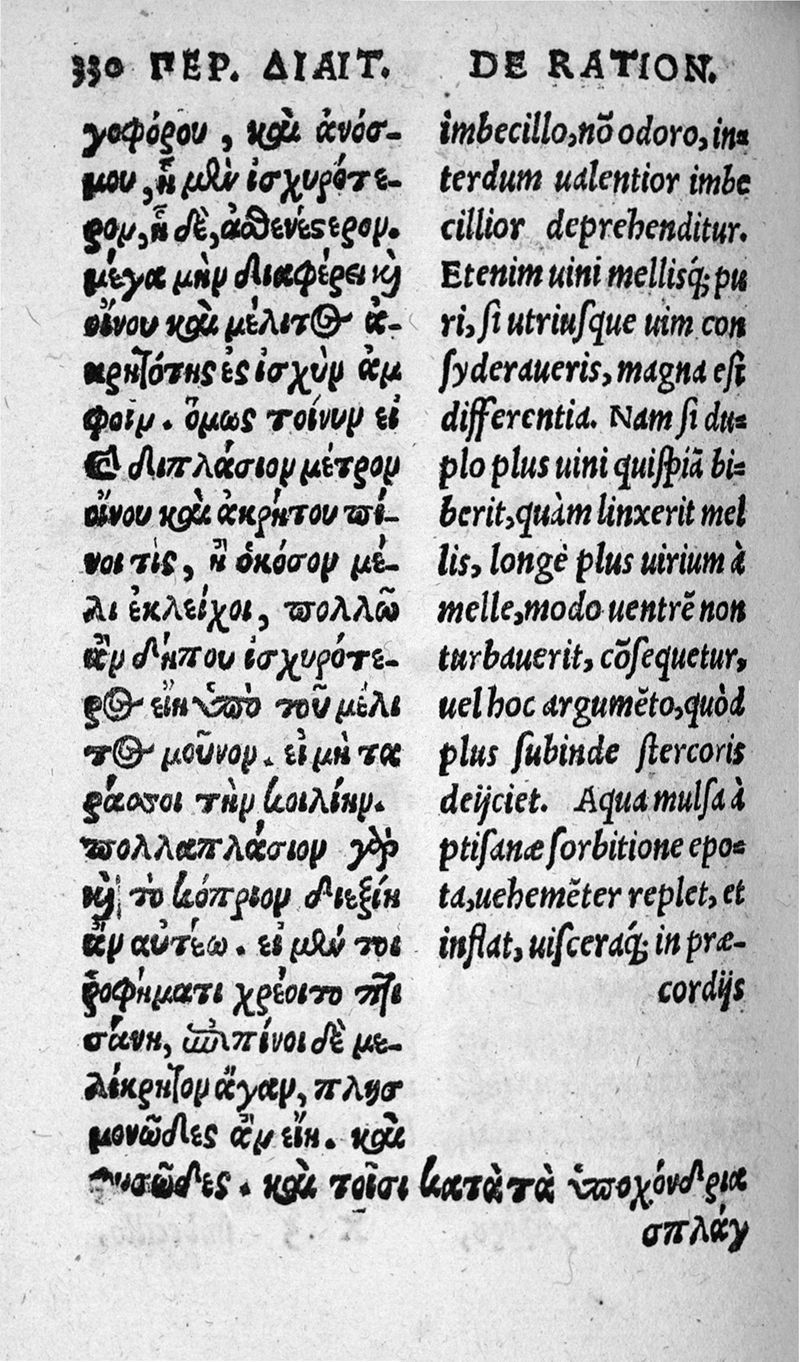 330 ΠΕΡ. ΔΙΑΙΤ. DE RATION.
γοφόρου, καὶ ἀνόσ-
μου, ἢ μὲν ἰσχυρότε-
ρον, ἢ δὲ, ἀσθενέστερον.
μέγα μὴν διαφέρει καὶ
οἴνου καὶ μέλιτος ἀ-
κρητότης ἐς ἰσχὺν ἀμ
φοῖν. ὅμως τοίνυν εἰ
καὶ διπλάσιον μέτρον
οἴνου καὶ ἀκρήτου πί-
νοι τὶς, ἢ ὁκόσον μέ-
λι ἐκλείχοι, πολλῶ
ἂν δήπου ἰσχυρότε-
ρος εἴη ὑπὸ τοῦ μέλι
τος μοῦνον. εἰ μὴ τα
ράσσοι τὴν κοιλίην.
πολλαπλάσιον γὰρ
καὶ τὸ κόπριον διεξίη
ἂν αὐτέω. εἰ μέν τοι
ῥοφήματι χρέοιτο πτι
σάνη, ἐπιπίνοι δὲ με-
λίκρητον ἄγαν, πλησ
μονῶδες ἂν εἴη. καὶ
φυσῶδες. καὶ τοῖσι κατὰ τὰ ὑποχόνδρια
σπλάγ
imbecillo, nõ odoro, in-
terdum ualentior imbe
cillior deprehenditur.
Etenim uini mellisq́; pu
ri, ſi utriuſque uim con
ſyderaueris, magna eſt
differentia. Nam ſi du-
plo plus uini quiſpiã bi-
berit, quàm linxerit mel
lis, longè plus uirium à
melle, modo uentrẽ non
turbauerit, cõſequetur,
uel hoc argumẽto, quòd
plus ſubinde ſtercoris
deijciet. Aqua mulſa à
ptiſanæ ſorbitione epo-
ta, uehemẽter replet, et
inflat, uiſceraq́; in præ-
cordijs